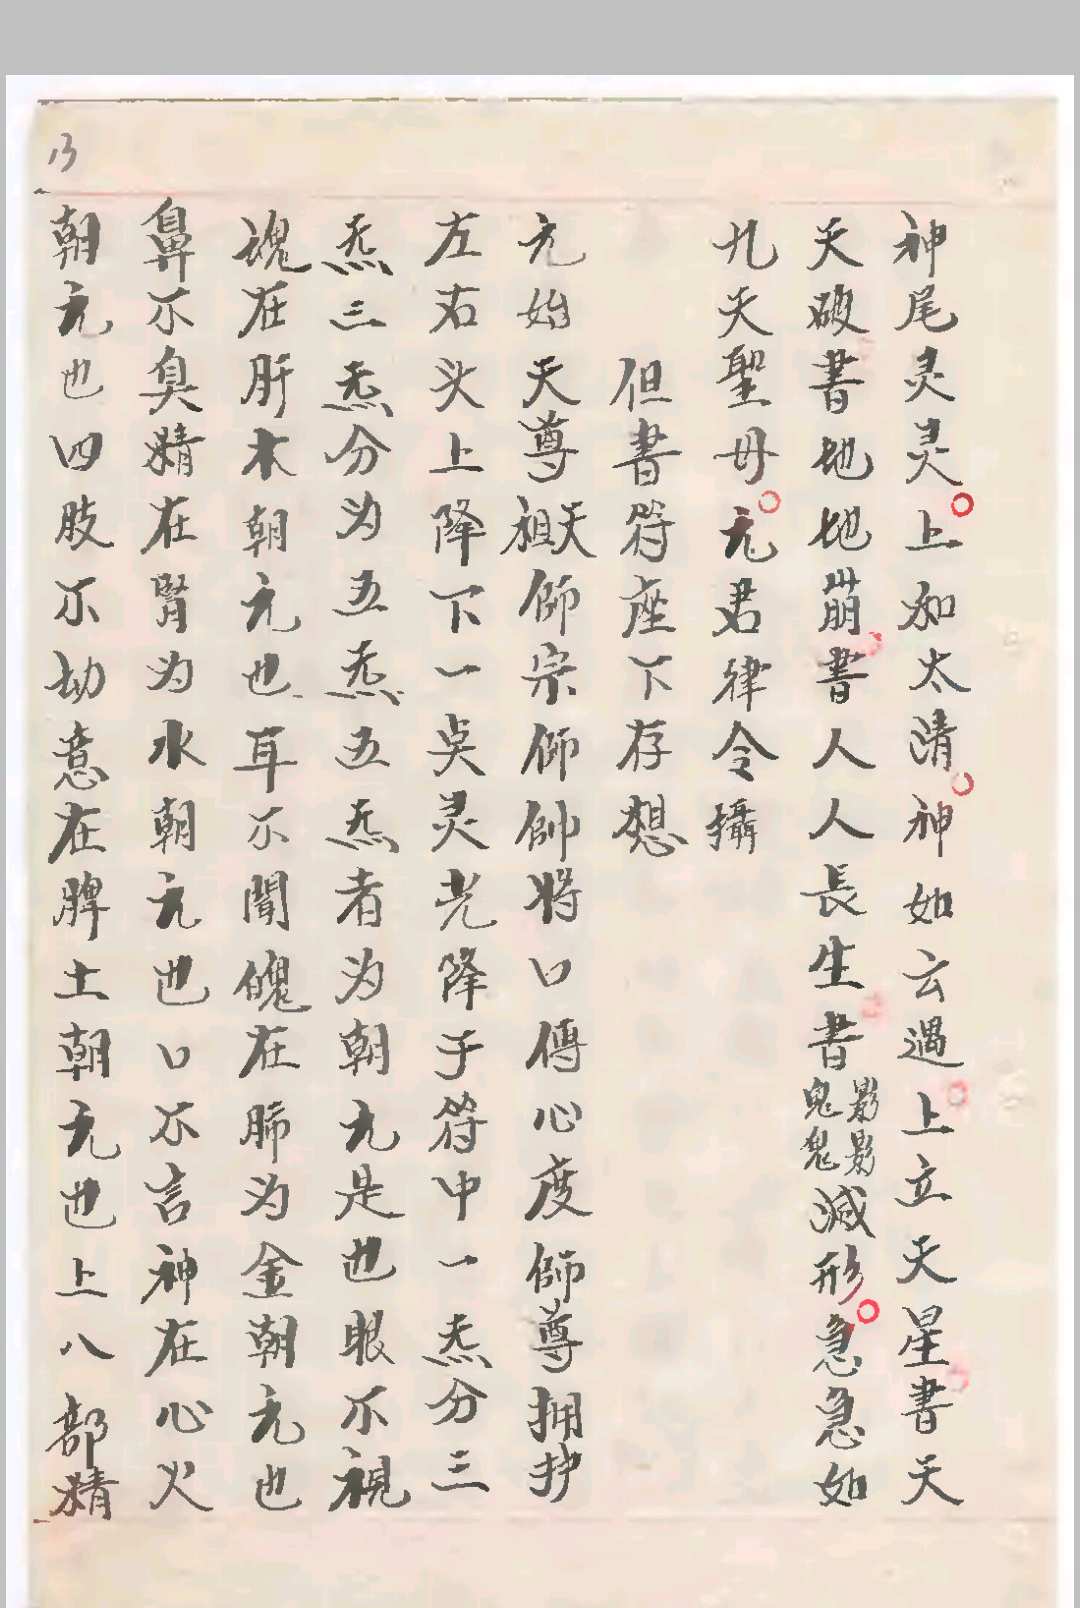 神尾灵灵上如太清神如云遇上立天星書天
天破書地地崩書人人長生書鬼影鬼影滅形急急如
九天聖母元君律令攝
但書符座下存想
元始天尊祖天師宗師帥將口傳心度師尊拥护
左右头上降下一点灵光降于符中一炁分三
炁三炁分为五炁五炁者为朝元是也眼不視
魂在肝木朝元也耳不聞魄在肺为金朝元也
鼻不臭精在腎为水朝元也口不言神在心火
朝元也四肢不动意在脾土朝元也上八部精
13